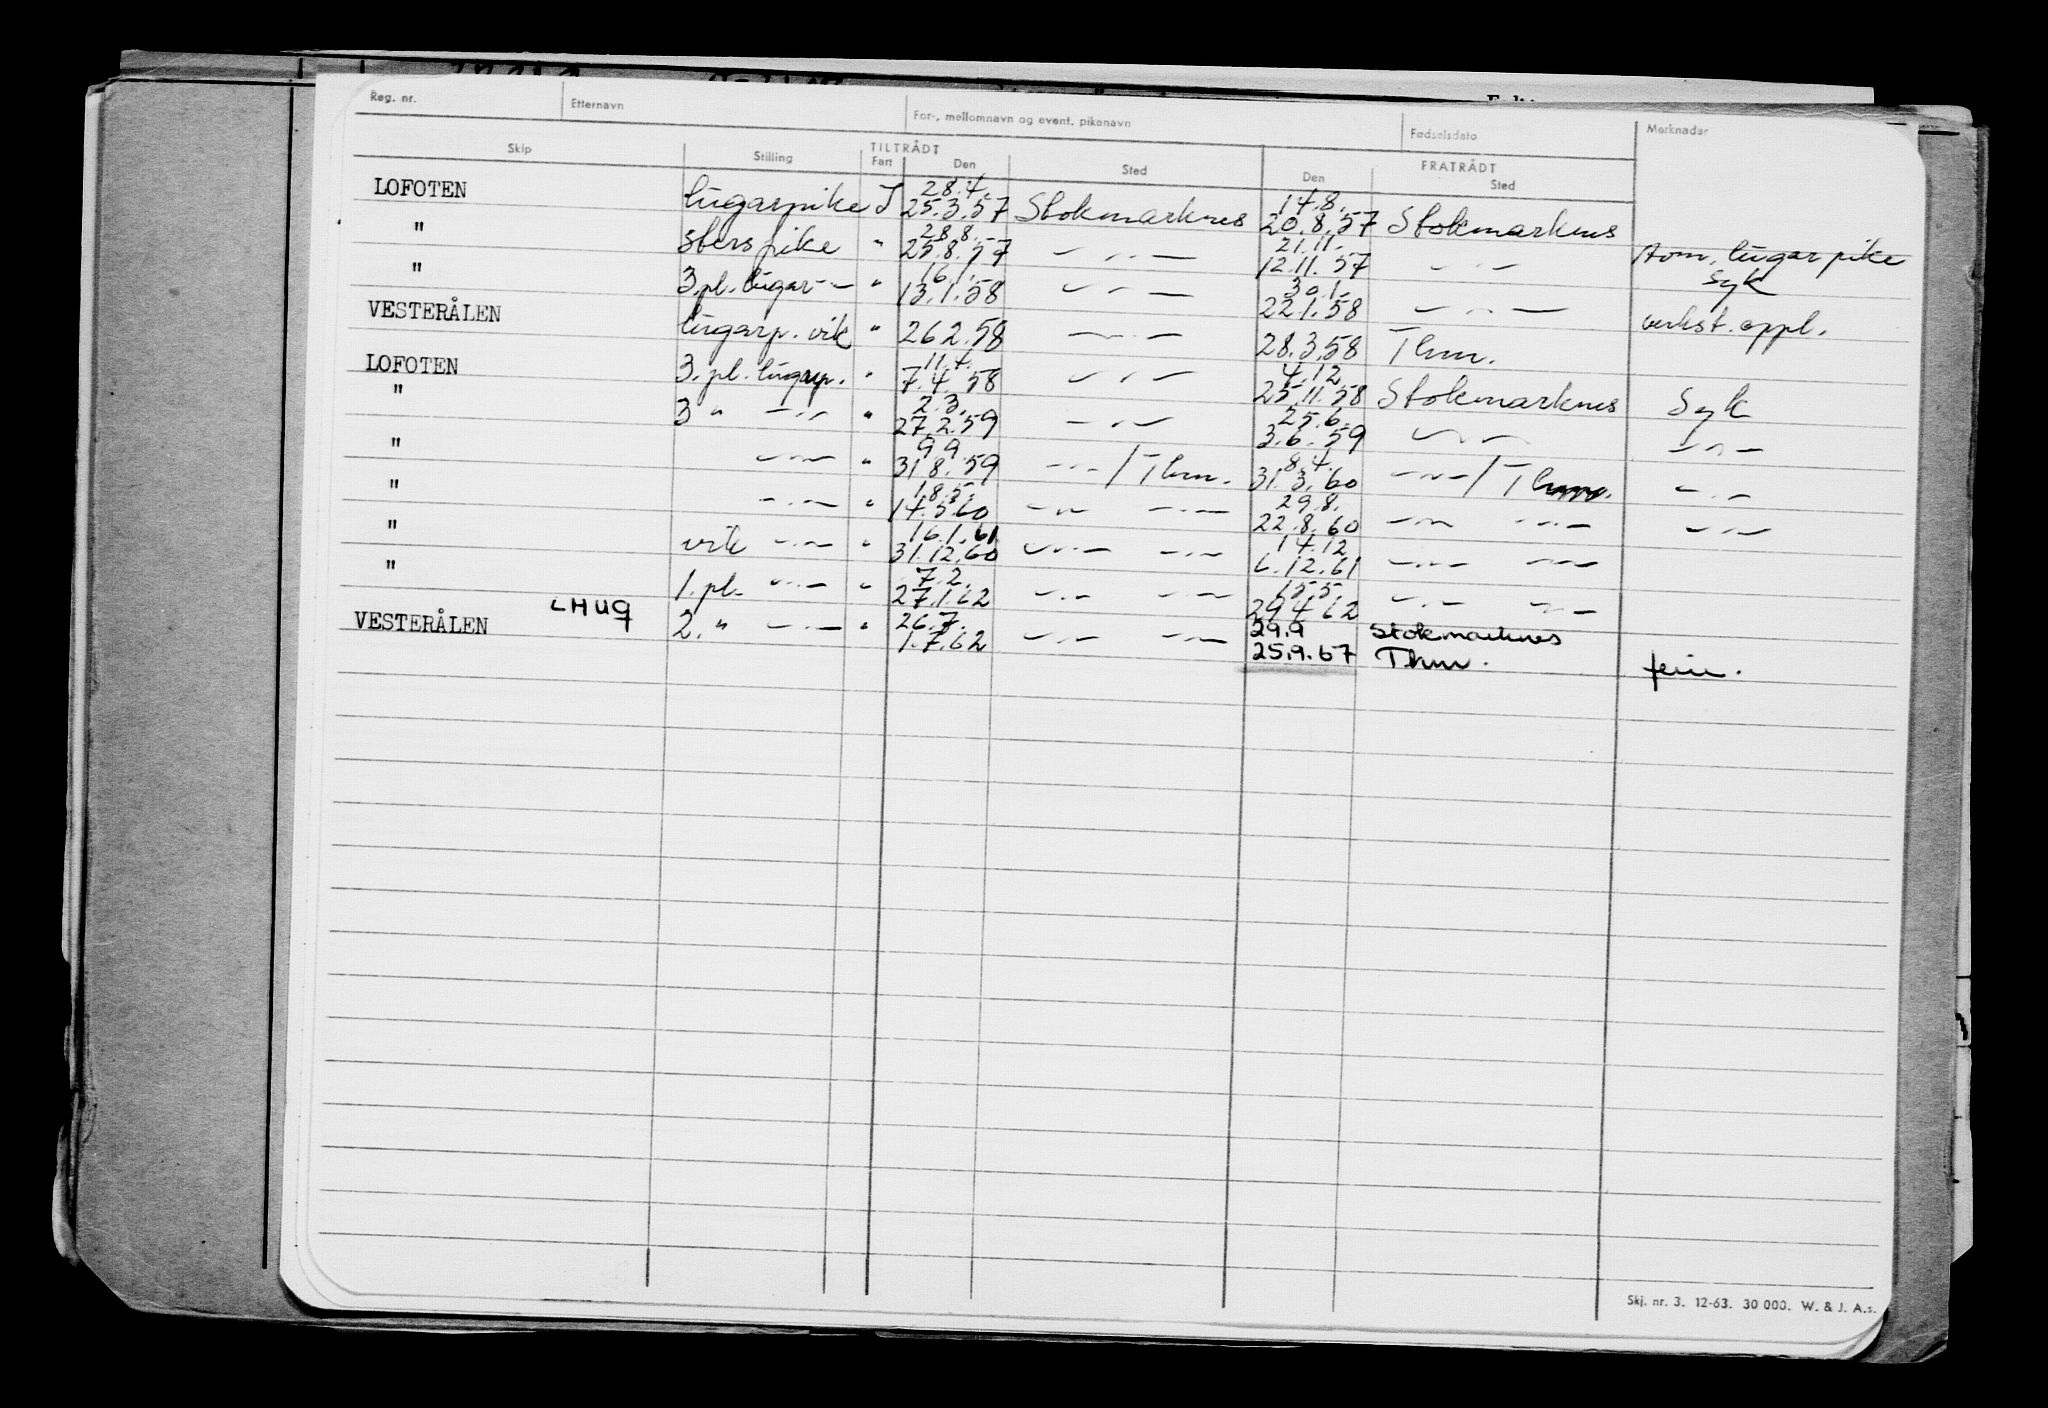 Reg. nr. Etternavn For-, mellomnavn og event. pikenavn Fødselsdato Merknader
Skip Stilling TILTRÅDT Fart Den Sted Den FRATRÅDT Sted
LOFOTEN lugarpike I 28.4. 25.3.57 Stokmarknes 14.8. 20.8.57 Stokmarknes
" sters pike " 28.8. 25.8.57 — " — 21.11. 12.11.57 — " — Avm. lugarpike
" 3.pl. lugar-"- " 16.1. 13.1.58 — " — 30.1. 22.1.58 — " — Syk
VESTERÅLEN lugarp. vik " 26.2.58 — " — 28.3.58 Thm. verkst. oppl.
LOFOTEN 3. pl. lugarp. " 11.4. 7.4.58 — " — 4.12. 25.11.58 Stokmarknes Syk
" 3 " — " — " 2.3. 27.2.59 — " — 25.6. 3.6.59 — " — — " —
" — " — " 9.9. 31.8.59 — " — / Thm. 8.4. 31.3.60 — " — / Thm. — " —
" — " — " 18.5. 14.5.60 — " — — " — 29.8. 22.8.60 — " — — " — — " —
" vik — " — " 16.1.61 31.12.60 — " — — " — 14.12 6.12.61 — " — — " —
" 1. pl. — " — " 7.2. 27.1.62 — " — — " — 15.5. 29.4.62 — " — — " —
VESTERÅLEN LHUQ 2. " — " — " 26.7. 1.7.62 — " — — " — 29.9 25.9.67 Stokmarknes Thm. ferie.
Skj. nr. 3. 12-63. 30 000. W. & J. A.s.